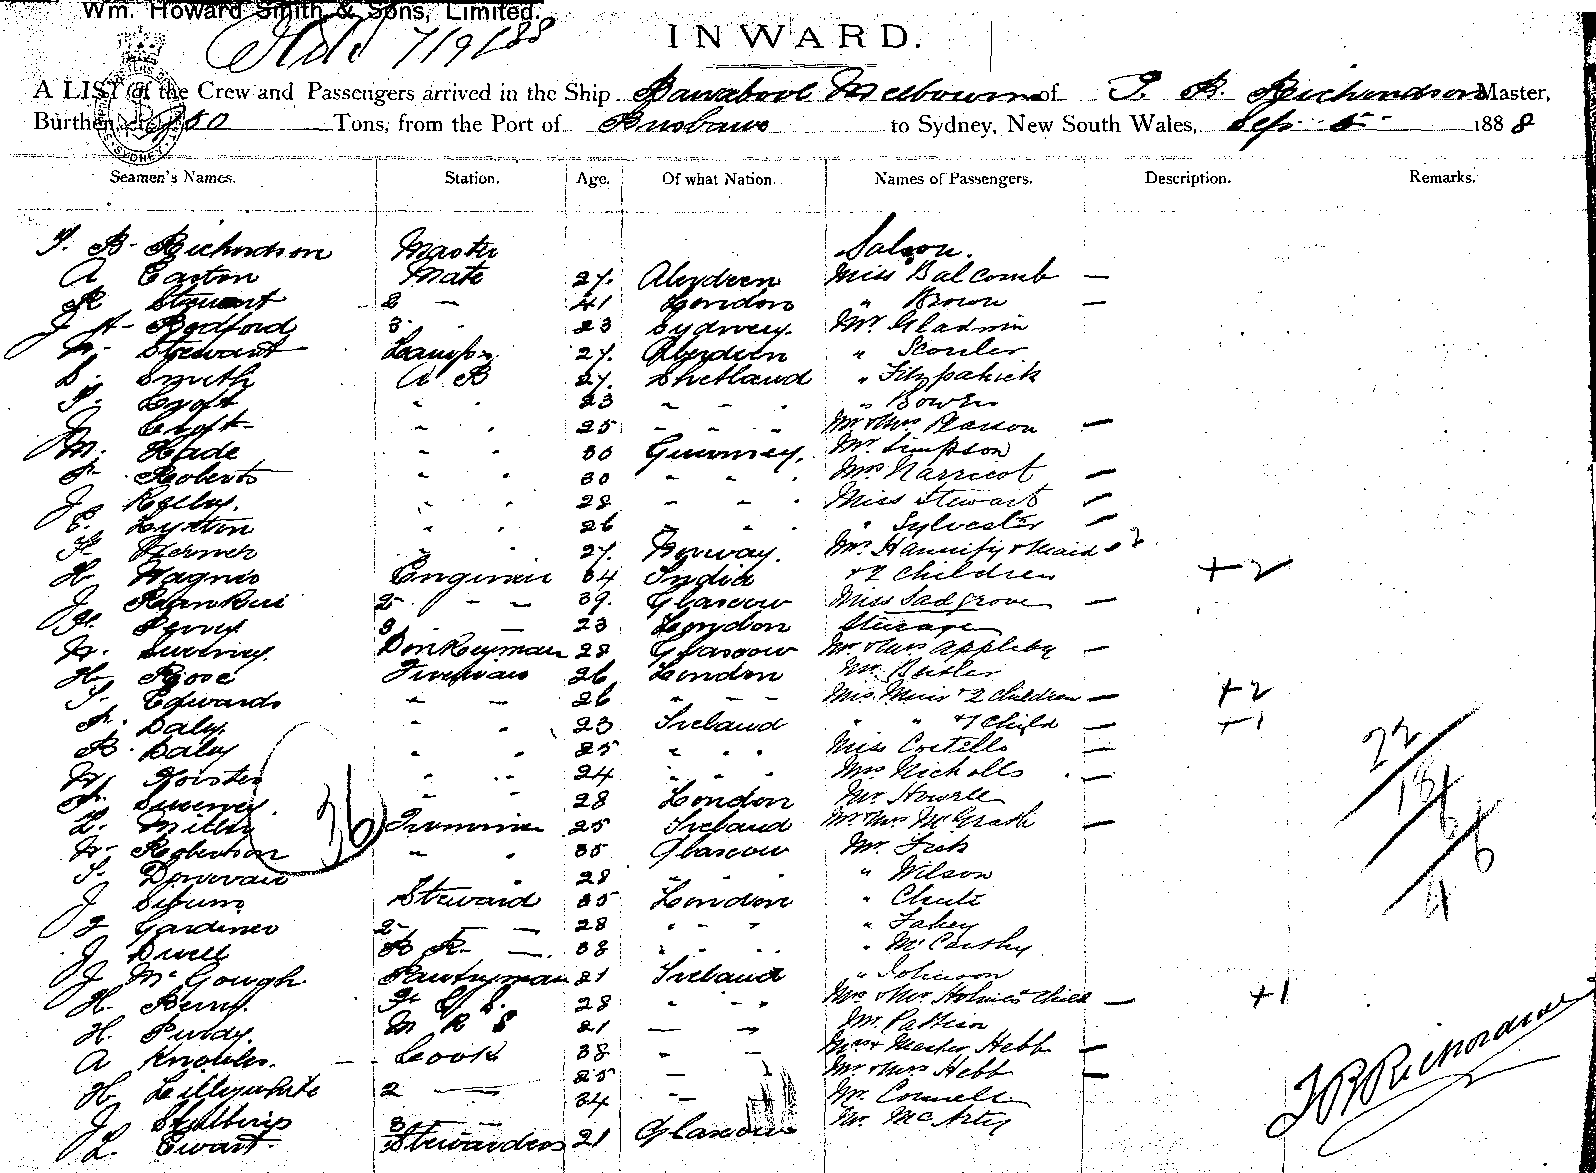 Wm. Howard Smith & Sons, Limited.
7/9/88
INWARD.
A LIST of the Crew and Passengers arrived in the Ship Barrabool Melbourne of T. B. Richardson Master,
Burthen Tons, from the Port of Brisbane to Sydney, New South Wales, Sep 5 1888
Seamen's Names. Station. Age. Of what Nation. Names of Passengers. Description. Remarks.
T. B. Richardson Master Saloon.
A Easton Mate 27. Aberdeen Miss Balcomb —
R Stewart 2 — 41 London " Brown —
J A. Bedford 3 23 Sydney. Mr. Gladwin
Stewart Lamps 27. Aberdeen " Scouler
Smith A B 27. Shetland " Fitzpatrick
Croft " " 23 " " " " Bowen
Croft " " 25 " " " Mr & Mrs Pearson —
M. Hade " " 30 Guernsey. Mr. Simpson
Roberts " " 30 " " " Mrs Narricot —
J. Kelly. " " 28 " " " Miss Stewart —
E. Lytton " " 26 " " " " Sylvester —
27. Norway. Mrs. Hannify & Maid 2
H. Wagner Engineer 34 India & 2 Children +2
J. Rankin 2 — — 39. Glasgow Miss Sadgrove —
Perry 3 — 23 London Steerage
W. Sweeney. Donkeyman 28 Glasgow Mr & Mrs Appleby —
H. Rose Fireman 26 London Mr. Butler
T. Edwards " " 26 " " " Mrs Muir & 2 Children — +2
Daly. " " 23 Ireland " " & 1 Child — +1
B. Daly " " 25 " " " Miss Costello —
" " 24 " " " Mrs Nicholls —
Sweeney. " " 28 London Mr Howell
36
Trimmer 25 Ireland Mr & Mrs McGrath —
W. Robertson " " 35 Glasgow Mr. Fish
Donovan " 28 " Wilson
J Steward 35 London " Chute
Gardiner 2 — — 28 " " " " Fahey
J Duell 38 " " " " McCarthy
J. McGough Pantryman 21 Ireland " Johnson
H. Berry. 28 " " Mr & Mrs Holmes & Child — +1
H. Purdy. 21 — " Mr. Pattison
A Knowles. Cook 38 " — Master Hebb —
H. Lilleywhite 2 — 25 — " Mr & Mrs Hebb —
J 3 34 Mr. Connell
L. Ewart. Stewardess 21 Glasgow Mr. McArty
22
18
4
T B Richardson